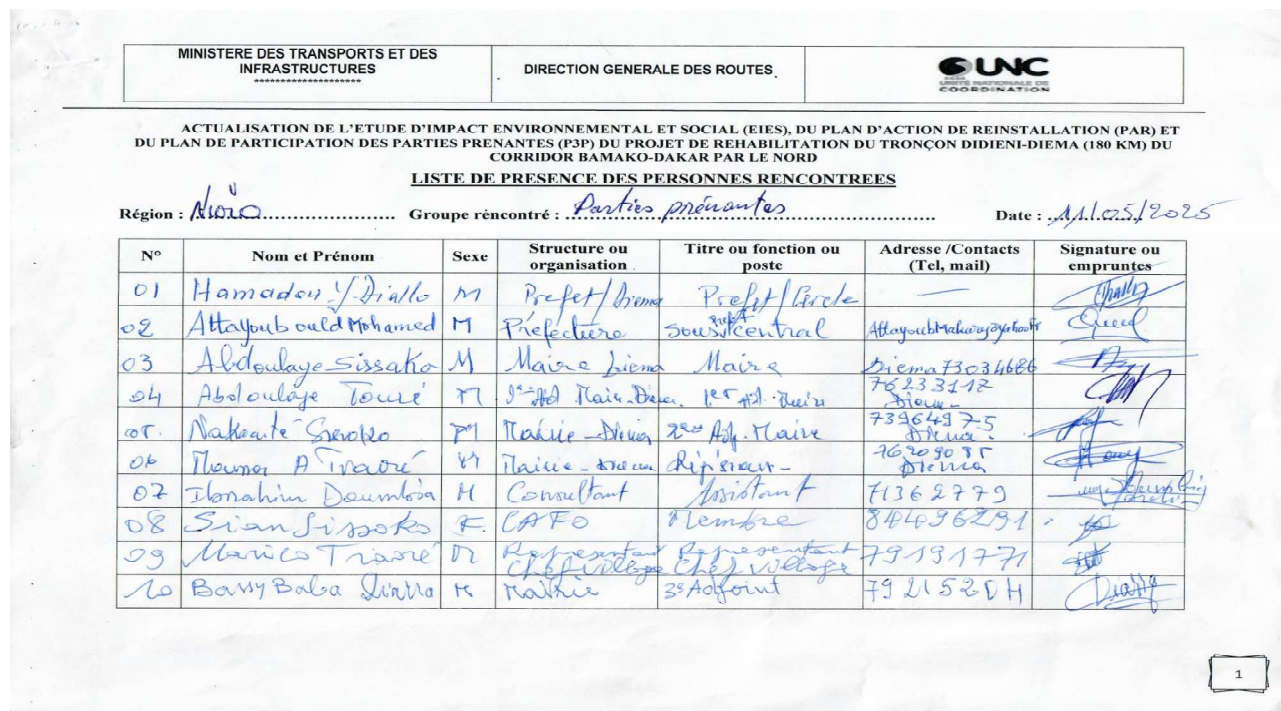 MINISTERE DES TRANSPORTS ET DES
INFRASTRUCTURES
********************
DIRECTION GENERALE DES ROUTES
UNC
UNITE NATIONALE DE
COORDINATION
ACTUALISATION DE L'ETUDE D'IMPACT ENVIRONNEMENTAL ET SOCIAL (EIES), DU PLAN D'ACTION DE REINSTALLATION (PAR) ET
DU PLAN DE PARTICIPATION DES PARTIES PRENANTES (P3P) DU PROJET DE REHABILITATION DU TRONÇON DIDIENI-DIEMA (180 KM) DU
CORRIDOR BAMAKO-DAKAR PAR LE NORD
LISTE DE PRESENCE DES PERSONNES RENCONTREES
Région : Nioro Groupe rencontré : Parties prénantes Date : 11/05/2025
N° Nom et Prénom Sexe Structure ou organisation Titre ou fonction ou poste Adresse /Contacts (Tel, mail) Signature ou empruntes
01 Hamadou Y Diallo M Prefet/Diema Prefet/Cercle —
02 Attayoub ould Mohamed M Préfecture sous prefet central
03 Abdoulaye Sissako M Maire Diema Maire Diema 73034686
04 Abdoulaye Touré M 1er Adj. Maire 76233112 Diema
05 M Mairie-Diema 2eme Adj. Maire Diema
06 Traoré M Mairie-Diema Diema
07 Ibrahim Doumbia M Consultant Assistant 71362779
08 Sissoko F CAFO Membre
09 Traoré M Representant Chef village Representant Chef village 79191771
10 Baba M Mairie 3e Adjoint
1